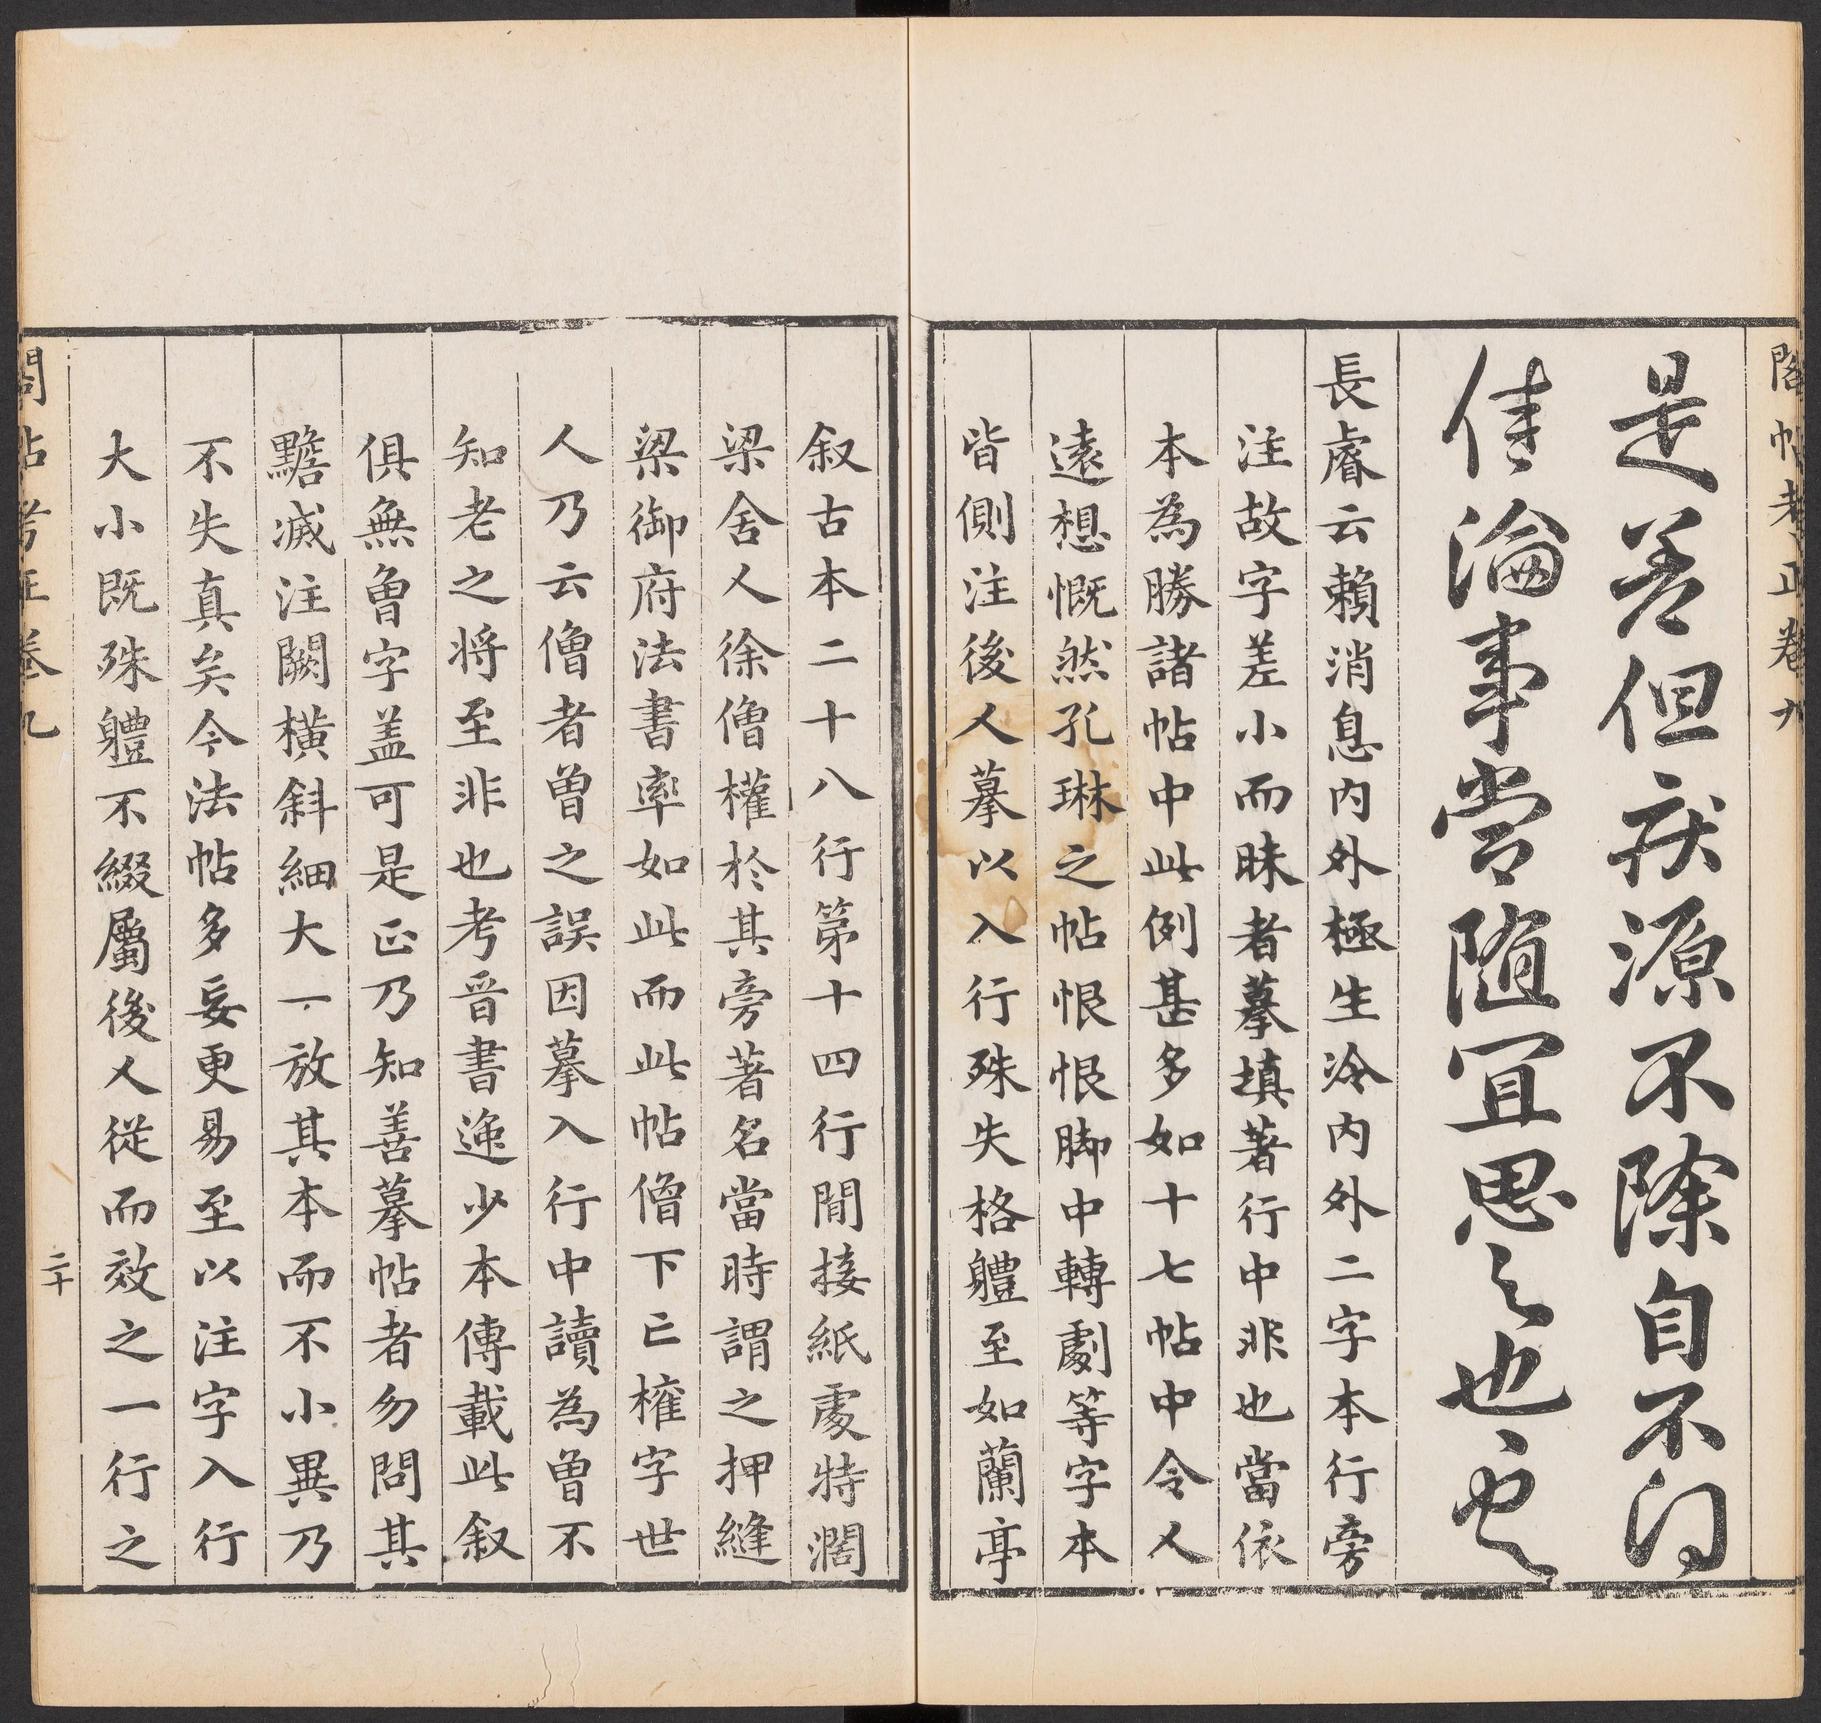 閣帖考正卷九
是差但疾源不除自不得
佳論事當隨宜思之也
長睿云賴消息内外極生冷内外二字本行旁
注故字差小而昧者摹填著行中非也當依
本為勝諸帖中此例甚多如十七帖中令人
遠想慨然孔琳之帖恨恨脚中轉劇等字本
皆側注後人摹以入行殊失格軆至如蘭亭
叙古本二十八行第十四行間接紙處特濶
梁舍人徐僧權於其旁著名當時謂之押縫
梁御府法書率如此而此帖僧下亡権字世
人乃云僧者曾之誤因摹入行中讀為曾不
知老之將至非也考晉書逸少本傳載此叙
俱無曾字盖可是正乃知善摹帖者勿問其
黵滅注闕橫斜細大一放其本而不小異乃
不失真矣今法帖多妄更易至以注字入行
大小既殊軆不綴屬後人從而效之一行之
閣帖考正卷九
二十